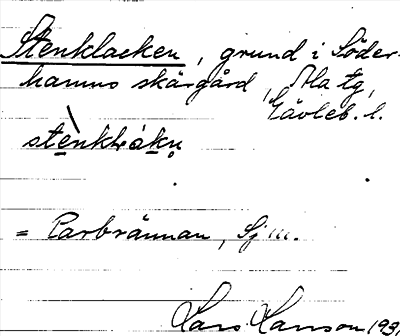 Stenklacken, grund i Söder-
hamns skärgård, Ala tg,
Gävleb. l.
= Carbrännan, Sj III.
Lars Larsson 193